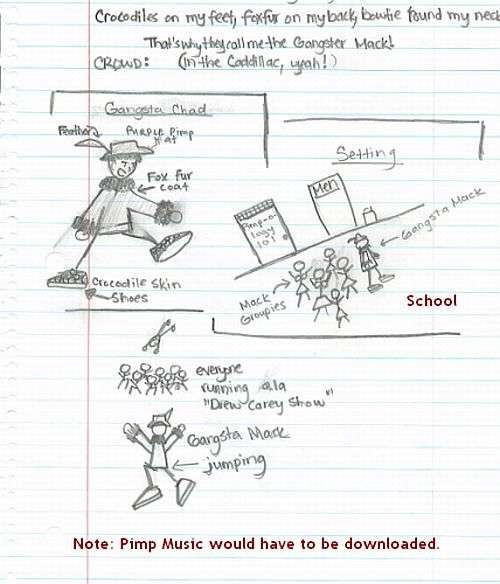 Crocodiles on my feet, fox fur on my back, bowtie found my neck
That's why they call me the Gangster Mack!
CROWD: (in the Caddillac, yeah!)
Gangsta Chad
Feather
Purple Pimp
Hat
Fox fur
coat
Crocodile Skin
Shoes
Setting
Men
Pimp-o-
logy
101
Gangsta Mack
Mack
Groupies
School
everyone
running a la
"Drew Carey Show"
Gangsta Mack
jumping
Note: Pimp Music would have to be downloaded.